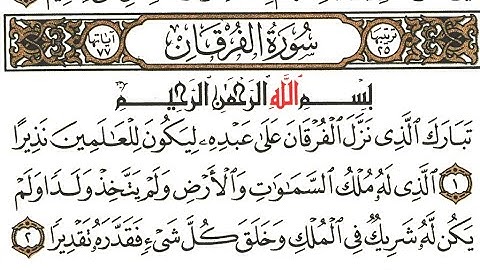 ترتيبها ٢٥ سورة الفرقان آياتها ٧٧
بسم الله الرحمن الرحيم
تَبَارَكَ ٱلَّذِى نَزَّلَ ٱلْفُرْقَانَ عَلَىٰ عَبْدِهِۦ لِيَكُونَ لِلْعَٰلَمِينَ نَذِيرًا
١ ٱلَّذِى لَهُۥ مُلْكُ ٱلسَّمَٰوَٰتِ وَٱلْأَرْضِ وَلَمْ يَتَّخِذْ وَلَدًا وَلَمْ
يَكُن لَّهُۥ شَرِيكٌ فِى ٱلْمُلْكِ وَخَلَقَ كُلَّ شَىْءٍ فَقَدَّرَهُۥ تَقْدِيرًا ٢